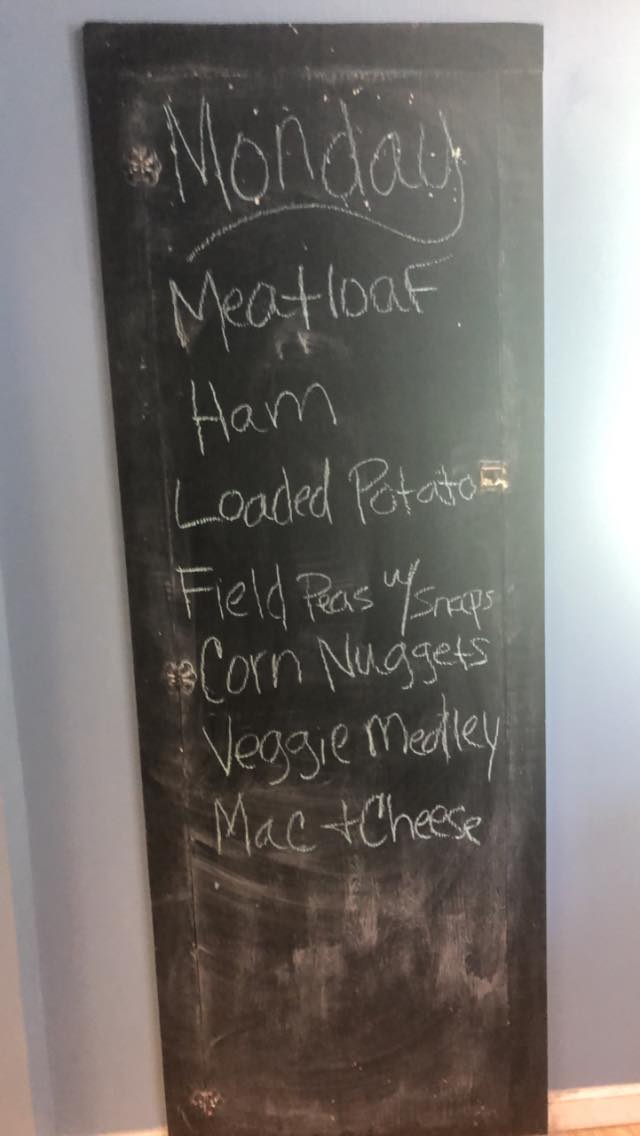 Monday
Meatloaf
Ham
Loaded Potato
Field Peas w/ Snaps
Corn Nuggets
Veggie Medley
Mac + Cheese